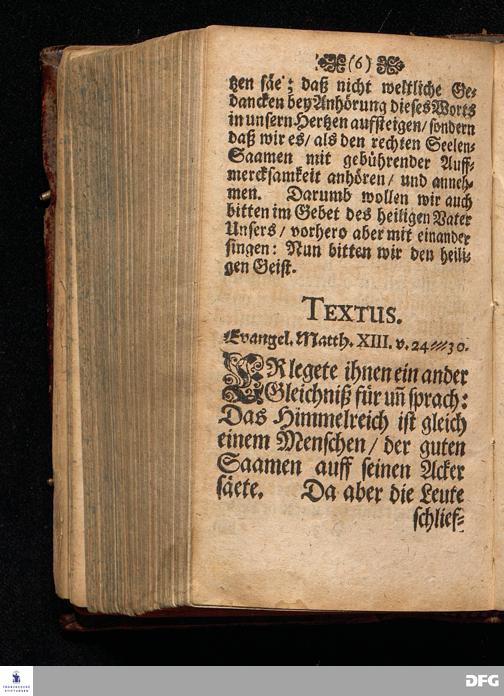 (6)
tzen säe; daß nicht weltliche Ge-
dancken bey Anhörung dieses Worts
in unsern Hertzen auffsteigen/ sondern
daß wir es/ als den rechten Seelen-
Saamen mit gebührender Auff-
mercksamkeit anhören/ und anneh-
men. Darumb wollen wir auch
bitten im Gebet des heiligen Vater
Unsers/ vorhero aber mit einander
singen: Nun bitten wir den heili-
gen Geist.
TEXTUS.
Evangel. Matth. XIII. v. 24---30.
ER legete ihnen ein ander
Gleichniß für uñ sprach:
Das Himmelreich ist gleich
einem Menschen/ der guten
Saamen auff seinen Acker
säete. Da aber die Leute
schlief-
FRANCKESCHE
STIFTUNGEN
DFG